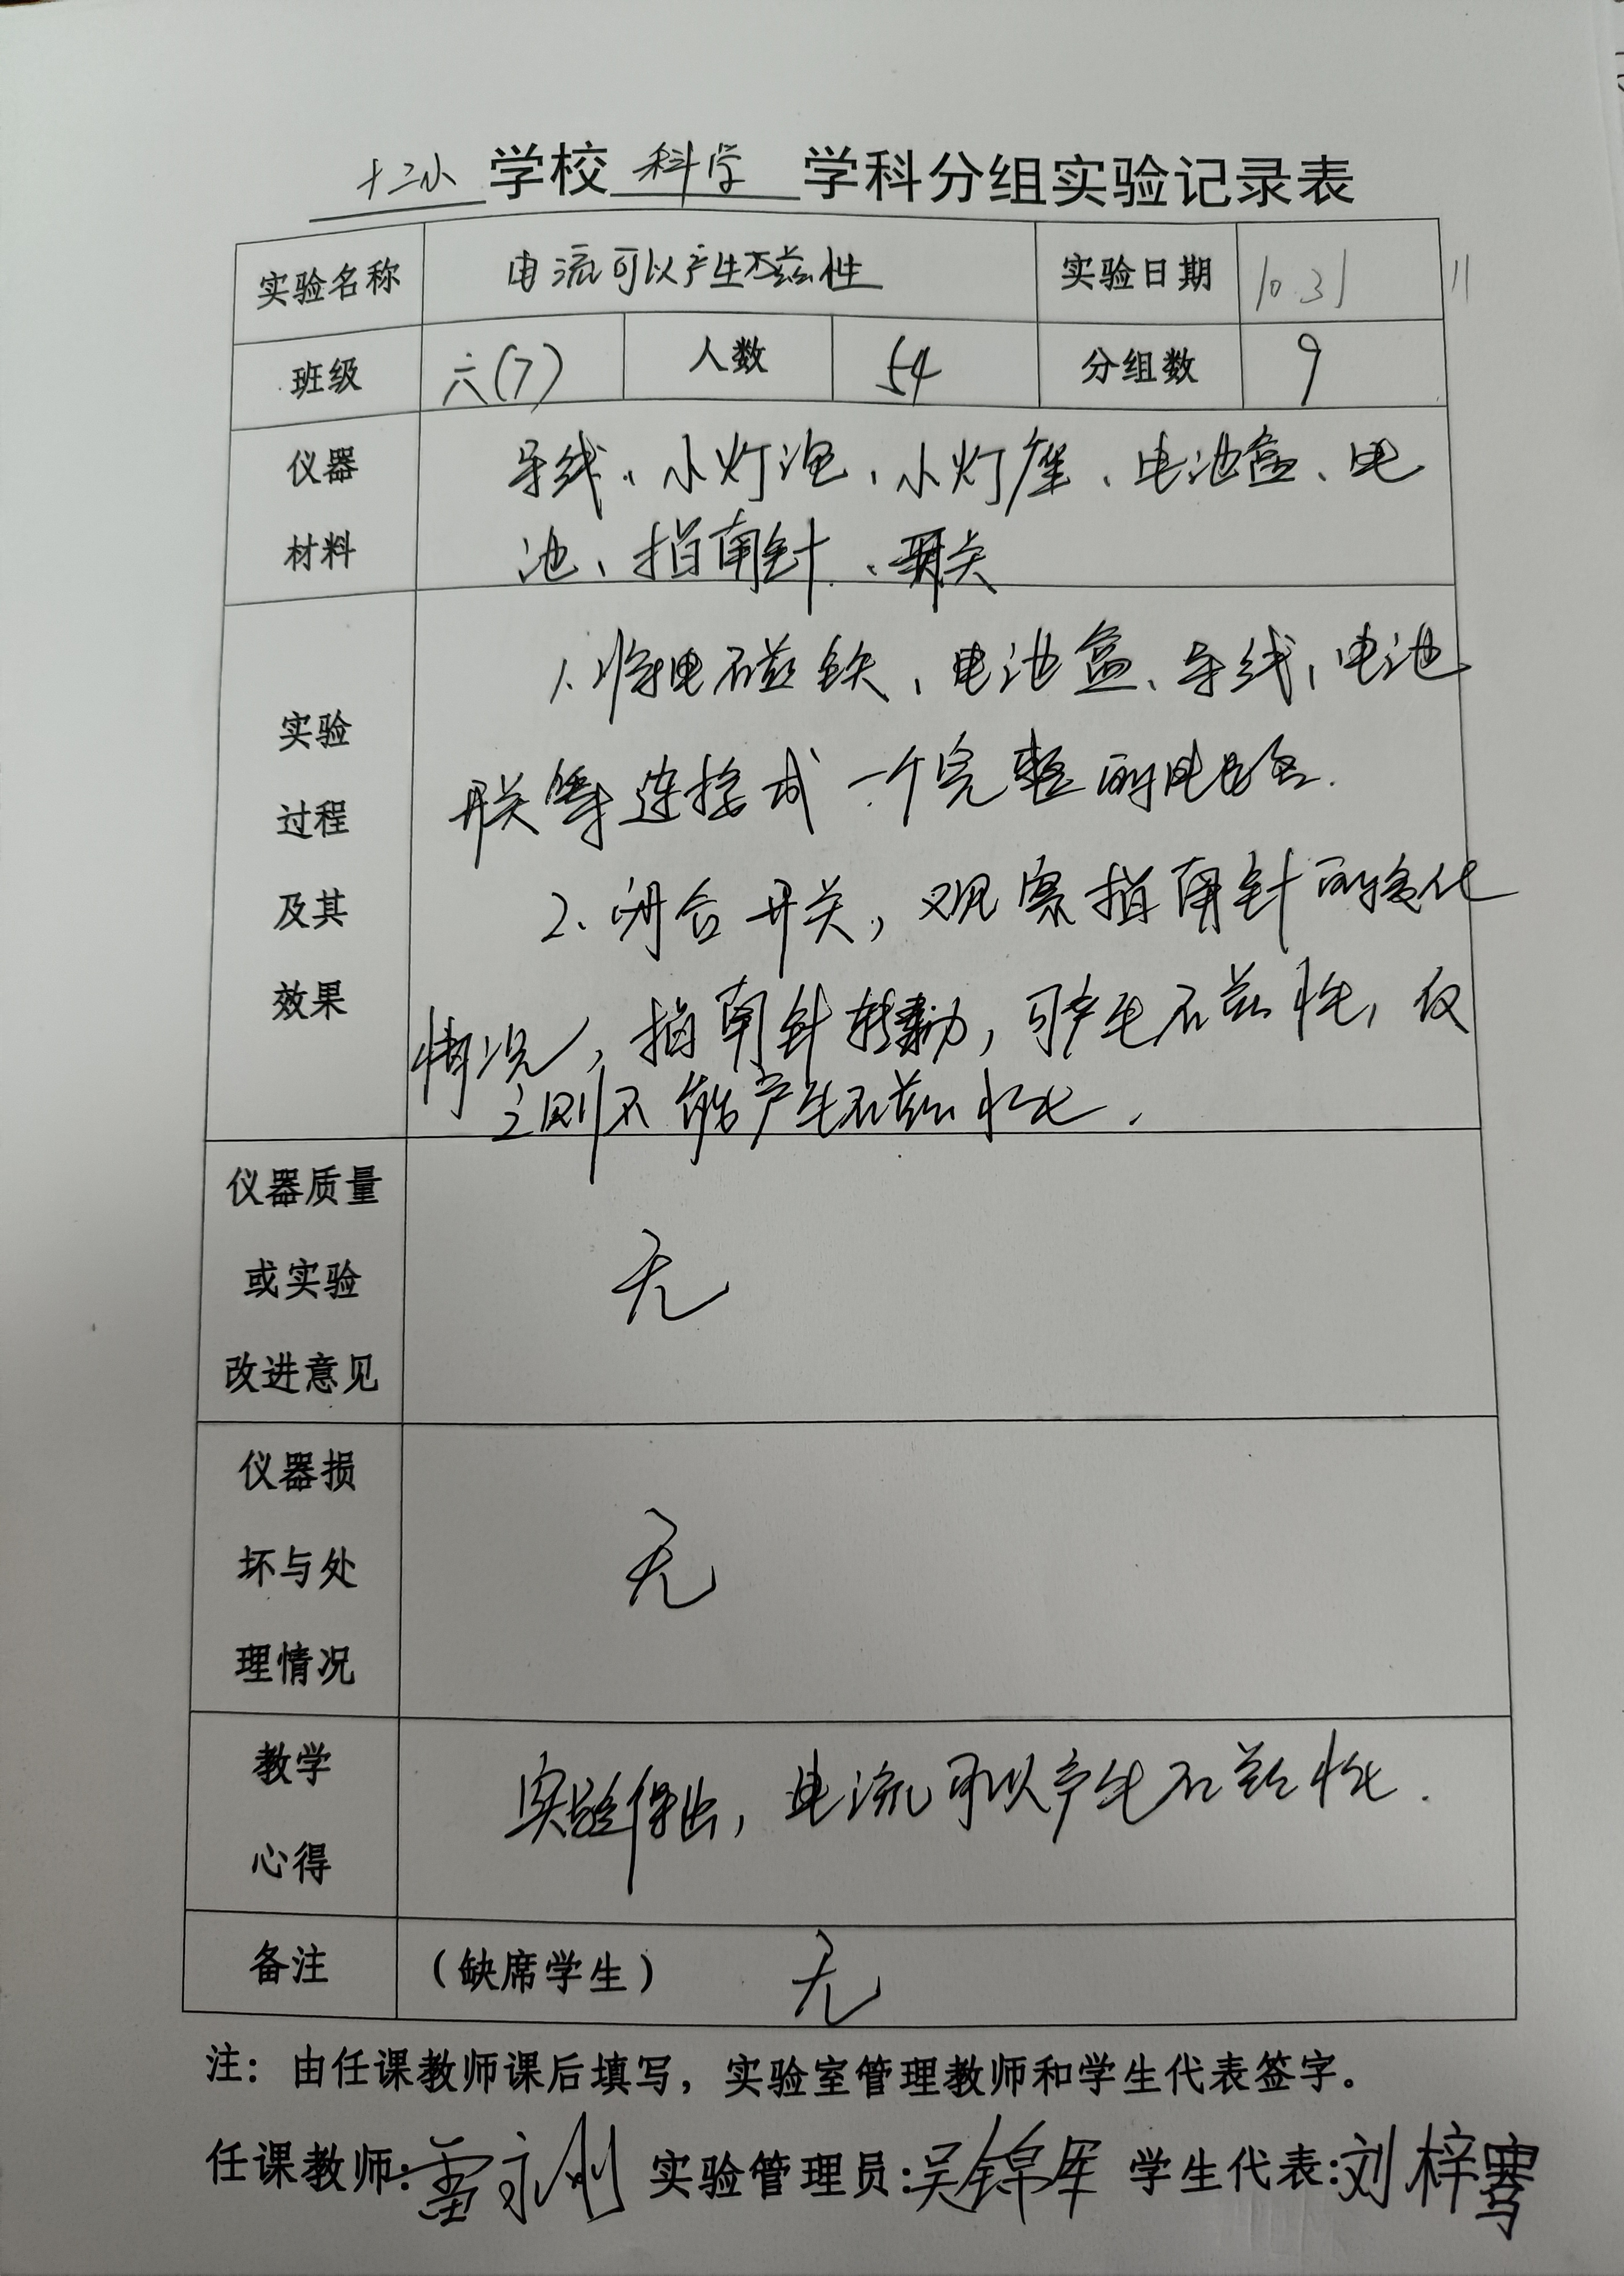 十二小学校科学学科分组实验记录表
实验名称 电流可以产生磁性 实验日期 10.31 11
班级 六(7) 人数 54 分组数 9
仪器 导线、小灯泡、小灯座、电池盒、电
材料 池、指南针、开关
1.将电磁铁、电池盒、导线、电池
实验
开关等连接成一个完整的电路.
过程
2.闭合开关,观察指南针的变化
及其
效果
情况,指南针转动,可产生磁性,反
之则不能产生磁性.
仪器质量
或实验 无
改进意见
仪器损
坏与处 无
理情况
教学 实验得出,电流可以产生磁性.
心得
备注 (缺席学生) 无
注:由任课教师课后填写,实验室管理教师和学生代表签字。
任课教师:雷永刚 实验管理员:吴锦军 学生代表:刘梓骞